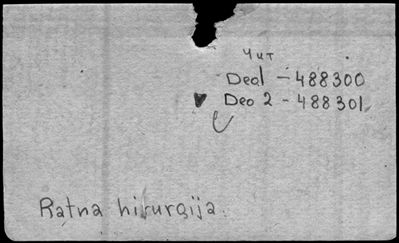 Чит
Deo 1 - 488300
Deo 2 - 488301
Ratna hirurgija.